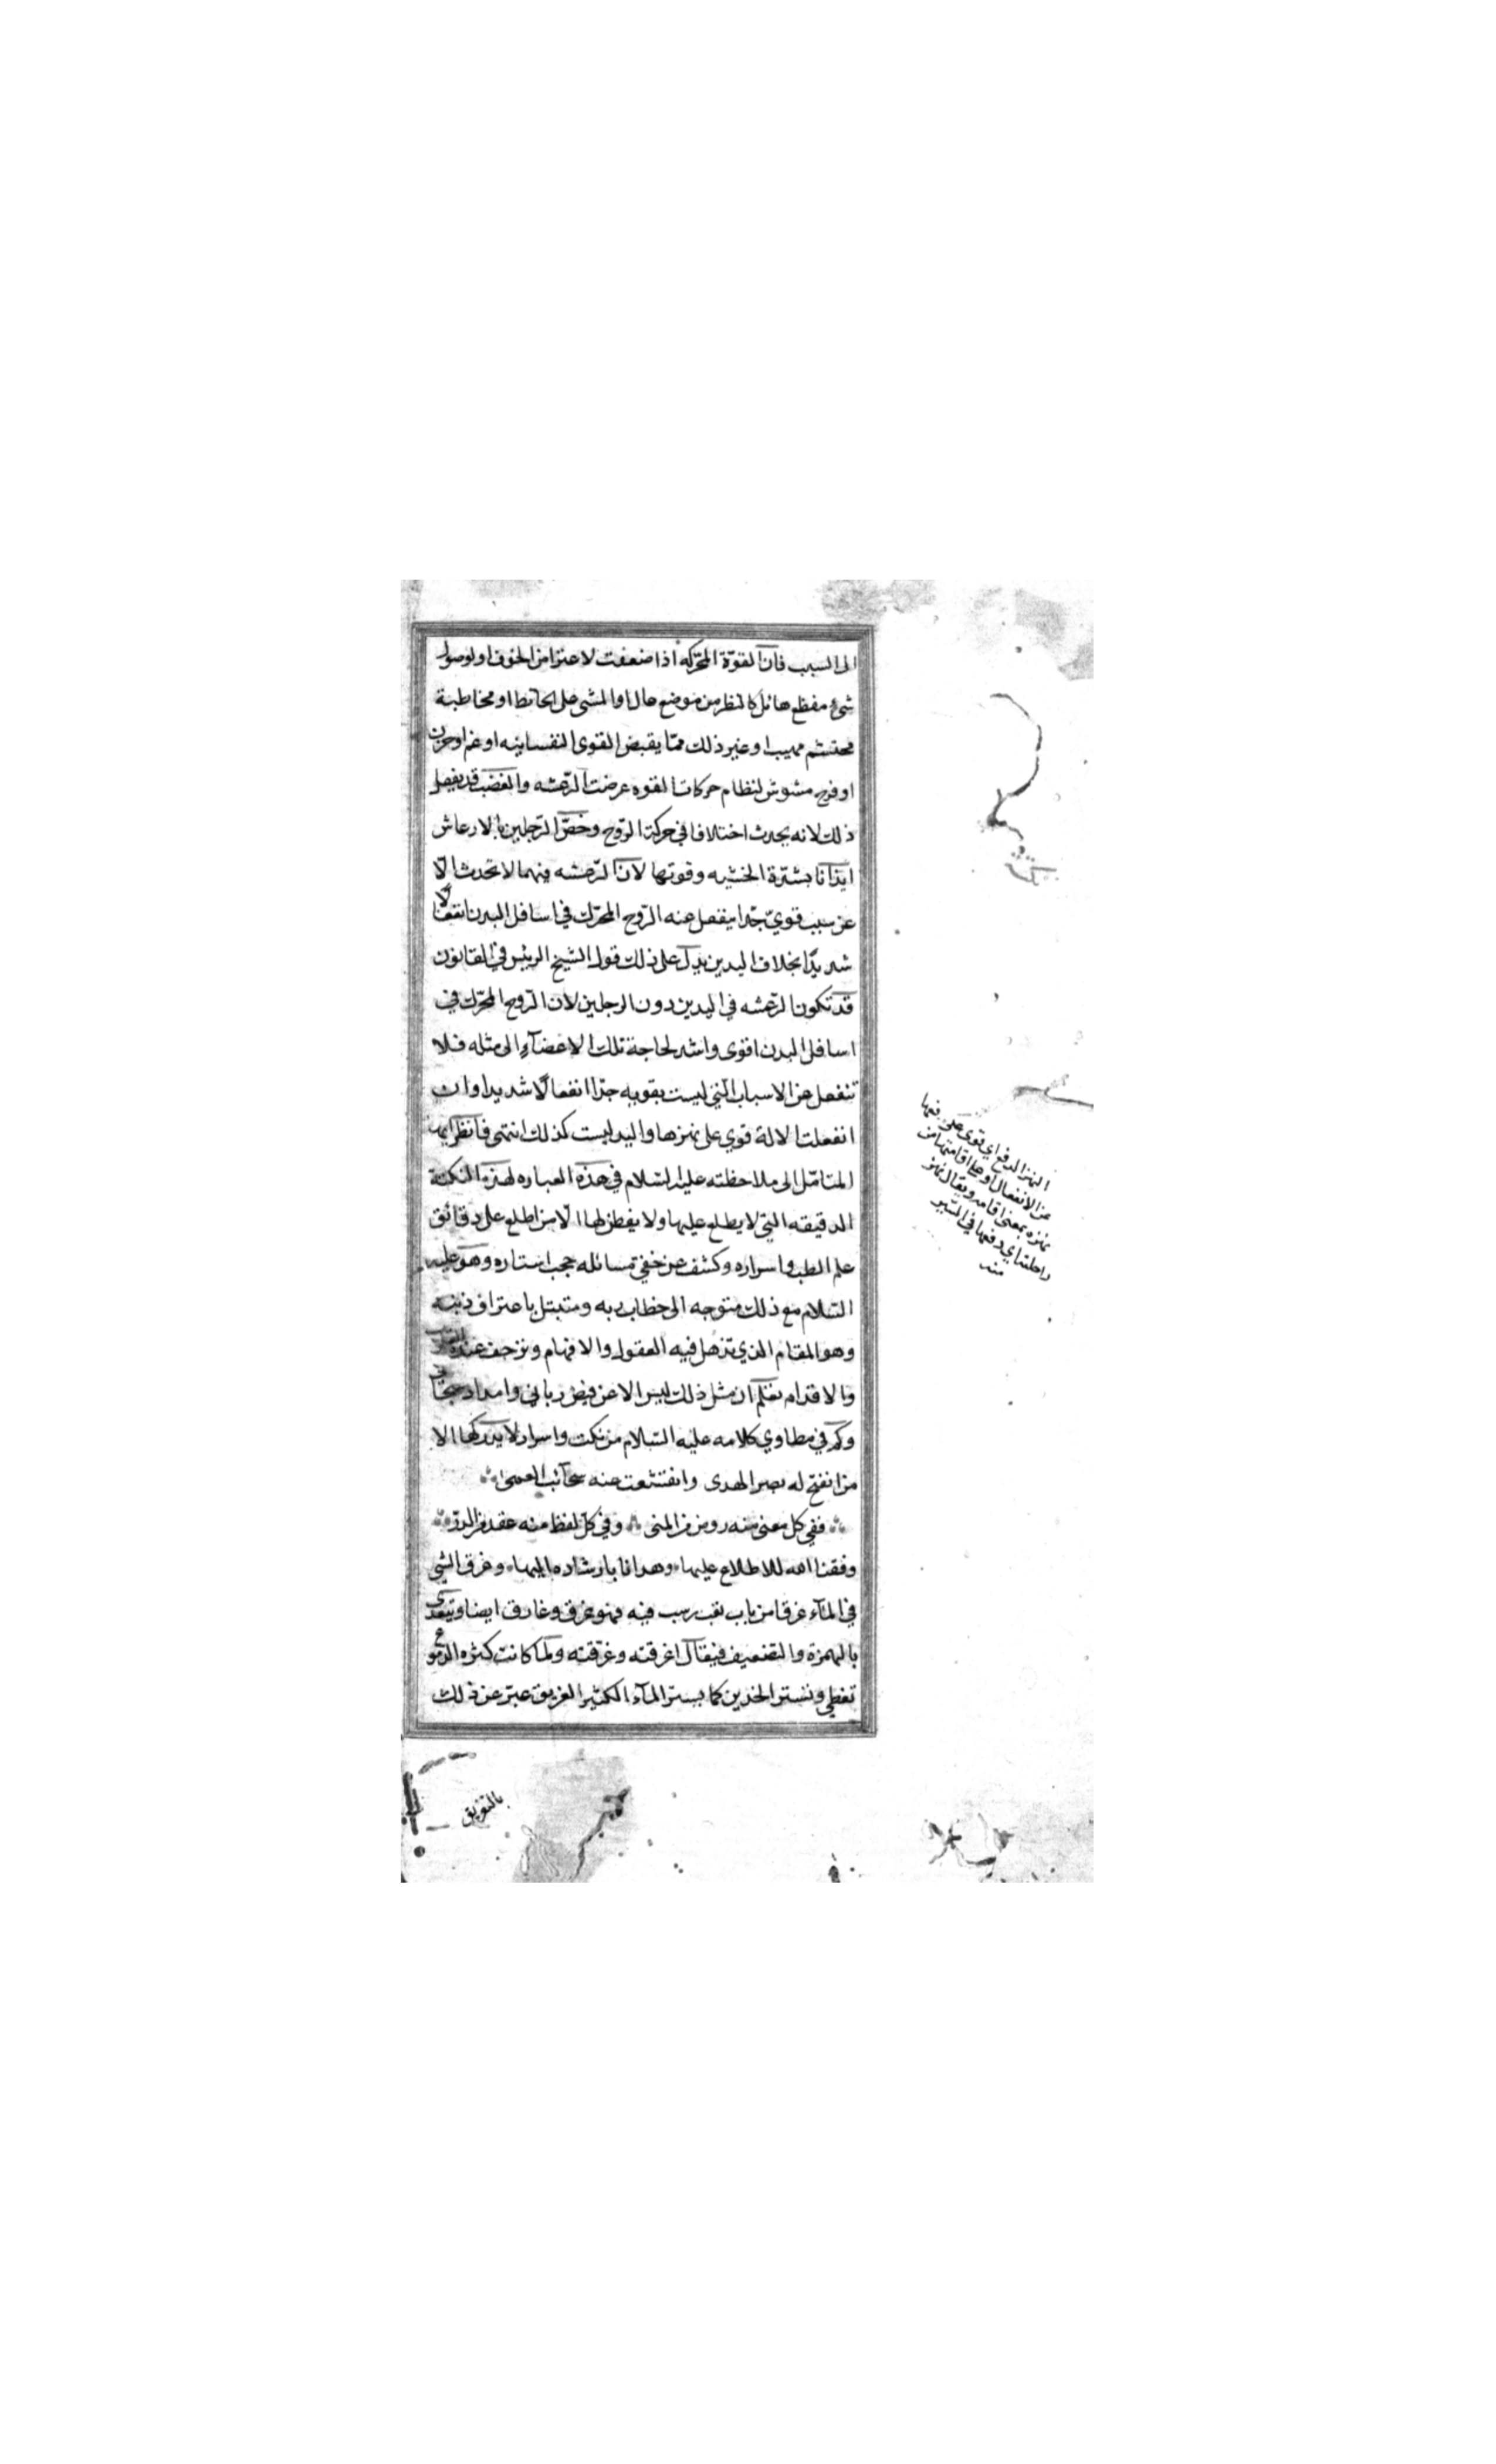 الى السبب فانّ القوّة المحرّكه اذا ضعفت لاعتراض الخوف او لوصول
شئ مفظع هائل كالنظر من موضع عال او المشى على الحائط او مخاطبة
محتشم مهيب او غير ذلك ممّا يقبض القوى النفسانيه او غم او حزن
او فرح مشوش لنظام حركات القوه عرضت الرّعشه والغضب قد يفعل
ذلك لانه يحدث اختلافا في حركة الرّوح وخصّ الرّجلين بالارعاش
ايذانا بشدّة الخشيه وقوتها لانّ الرّعشه فيهما لا تحدث الّا
عن سبب قويّ جدّا ينفعل عنه الرّوح المحرّك في اسافل البدن انفعالا
شديدًا بخلاف اليدين يدلّ على ذلك قول الشيخ الرئيس في القانون
قد تكون الرّعشه في اليدين دون الرجلين لان الرّوح المحرّك في
اسافل البدن اقوى واشد لحاجة تلك الاعضآء الى مثله فلا
تنفعل عن الاسباب الّتي ليست بقويه جدّا انفعالًا شديدا وان
انفعلت الالة قوي على نهزها واليد ليست كذلك انتهى فانظر ايها
المتامّل الى ملاحظته عليه السّلام في هذه العباره لهذه النكتة
الدقيقه التي لا يطلع عليها ولا يفطن لها الّا من اطلع على دقائق
علم الطب واسراره وكشف عن خفيّ مسائله حجب استاره وهو عليه
السّلام مع ذلك متوجه الى خطاب ربه ومتبتل باعتراف ذنبه
وهو المقام الذي تذهل فيه العقول والافهام وتزحف عنده
والاقدام يعلم ان مثل ذلك ليس الا عن فيض رباني وامداد سبحاني
وكم في مطاوي كلامه عليه السّلام من نكت واسرار لا يدركها الا
من انفتح له بصر الهدى وانقشعت عنه سحآئب العمى
ففي كل معنى منه روض من المنى وفي كلّ لفظ منه عقد من الدرّ
وفقنا الله للاطلاع عليها وهدانا بارشاده اليها وغرق الشي
في المآء غرقا من باب تعب رسب فيه فهو غرق وغارق ايضا ويتعدى
بالهمزة والتضعيف فيقال اغرقته وغرّقته ولمّا كانت كثره الدموع
تغطي وتستر الخدين كما يستر المآء الكثير الغريق عبّر عن ذلك
بالتغريق
النهز الدفع اي يقوى على دفعها
عن الانفعال او على اقامتها من
نهزه بمعنى اقامه ويقال نهز
راحلته اي دفعها في السّير
منه